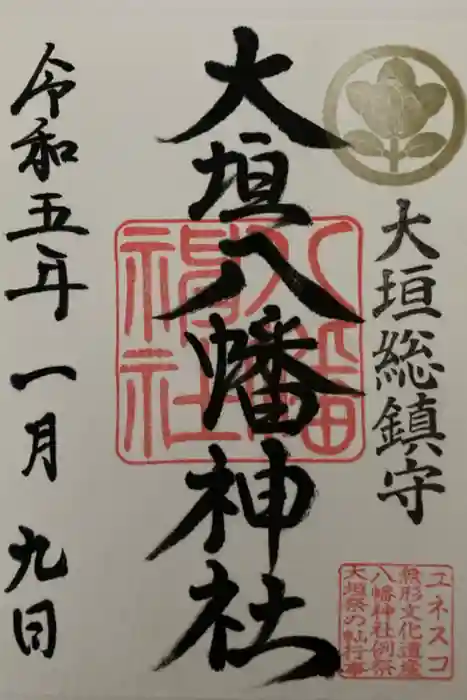 大垣総鎮守
大垣八幡神社
令和五年一月九日
ユネスコ
無形文化遺産
八幡神社例祭
大垣祭の軕行事